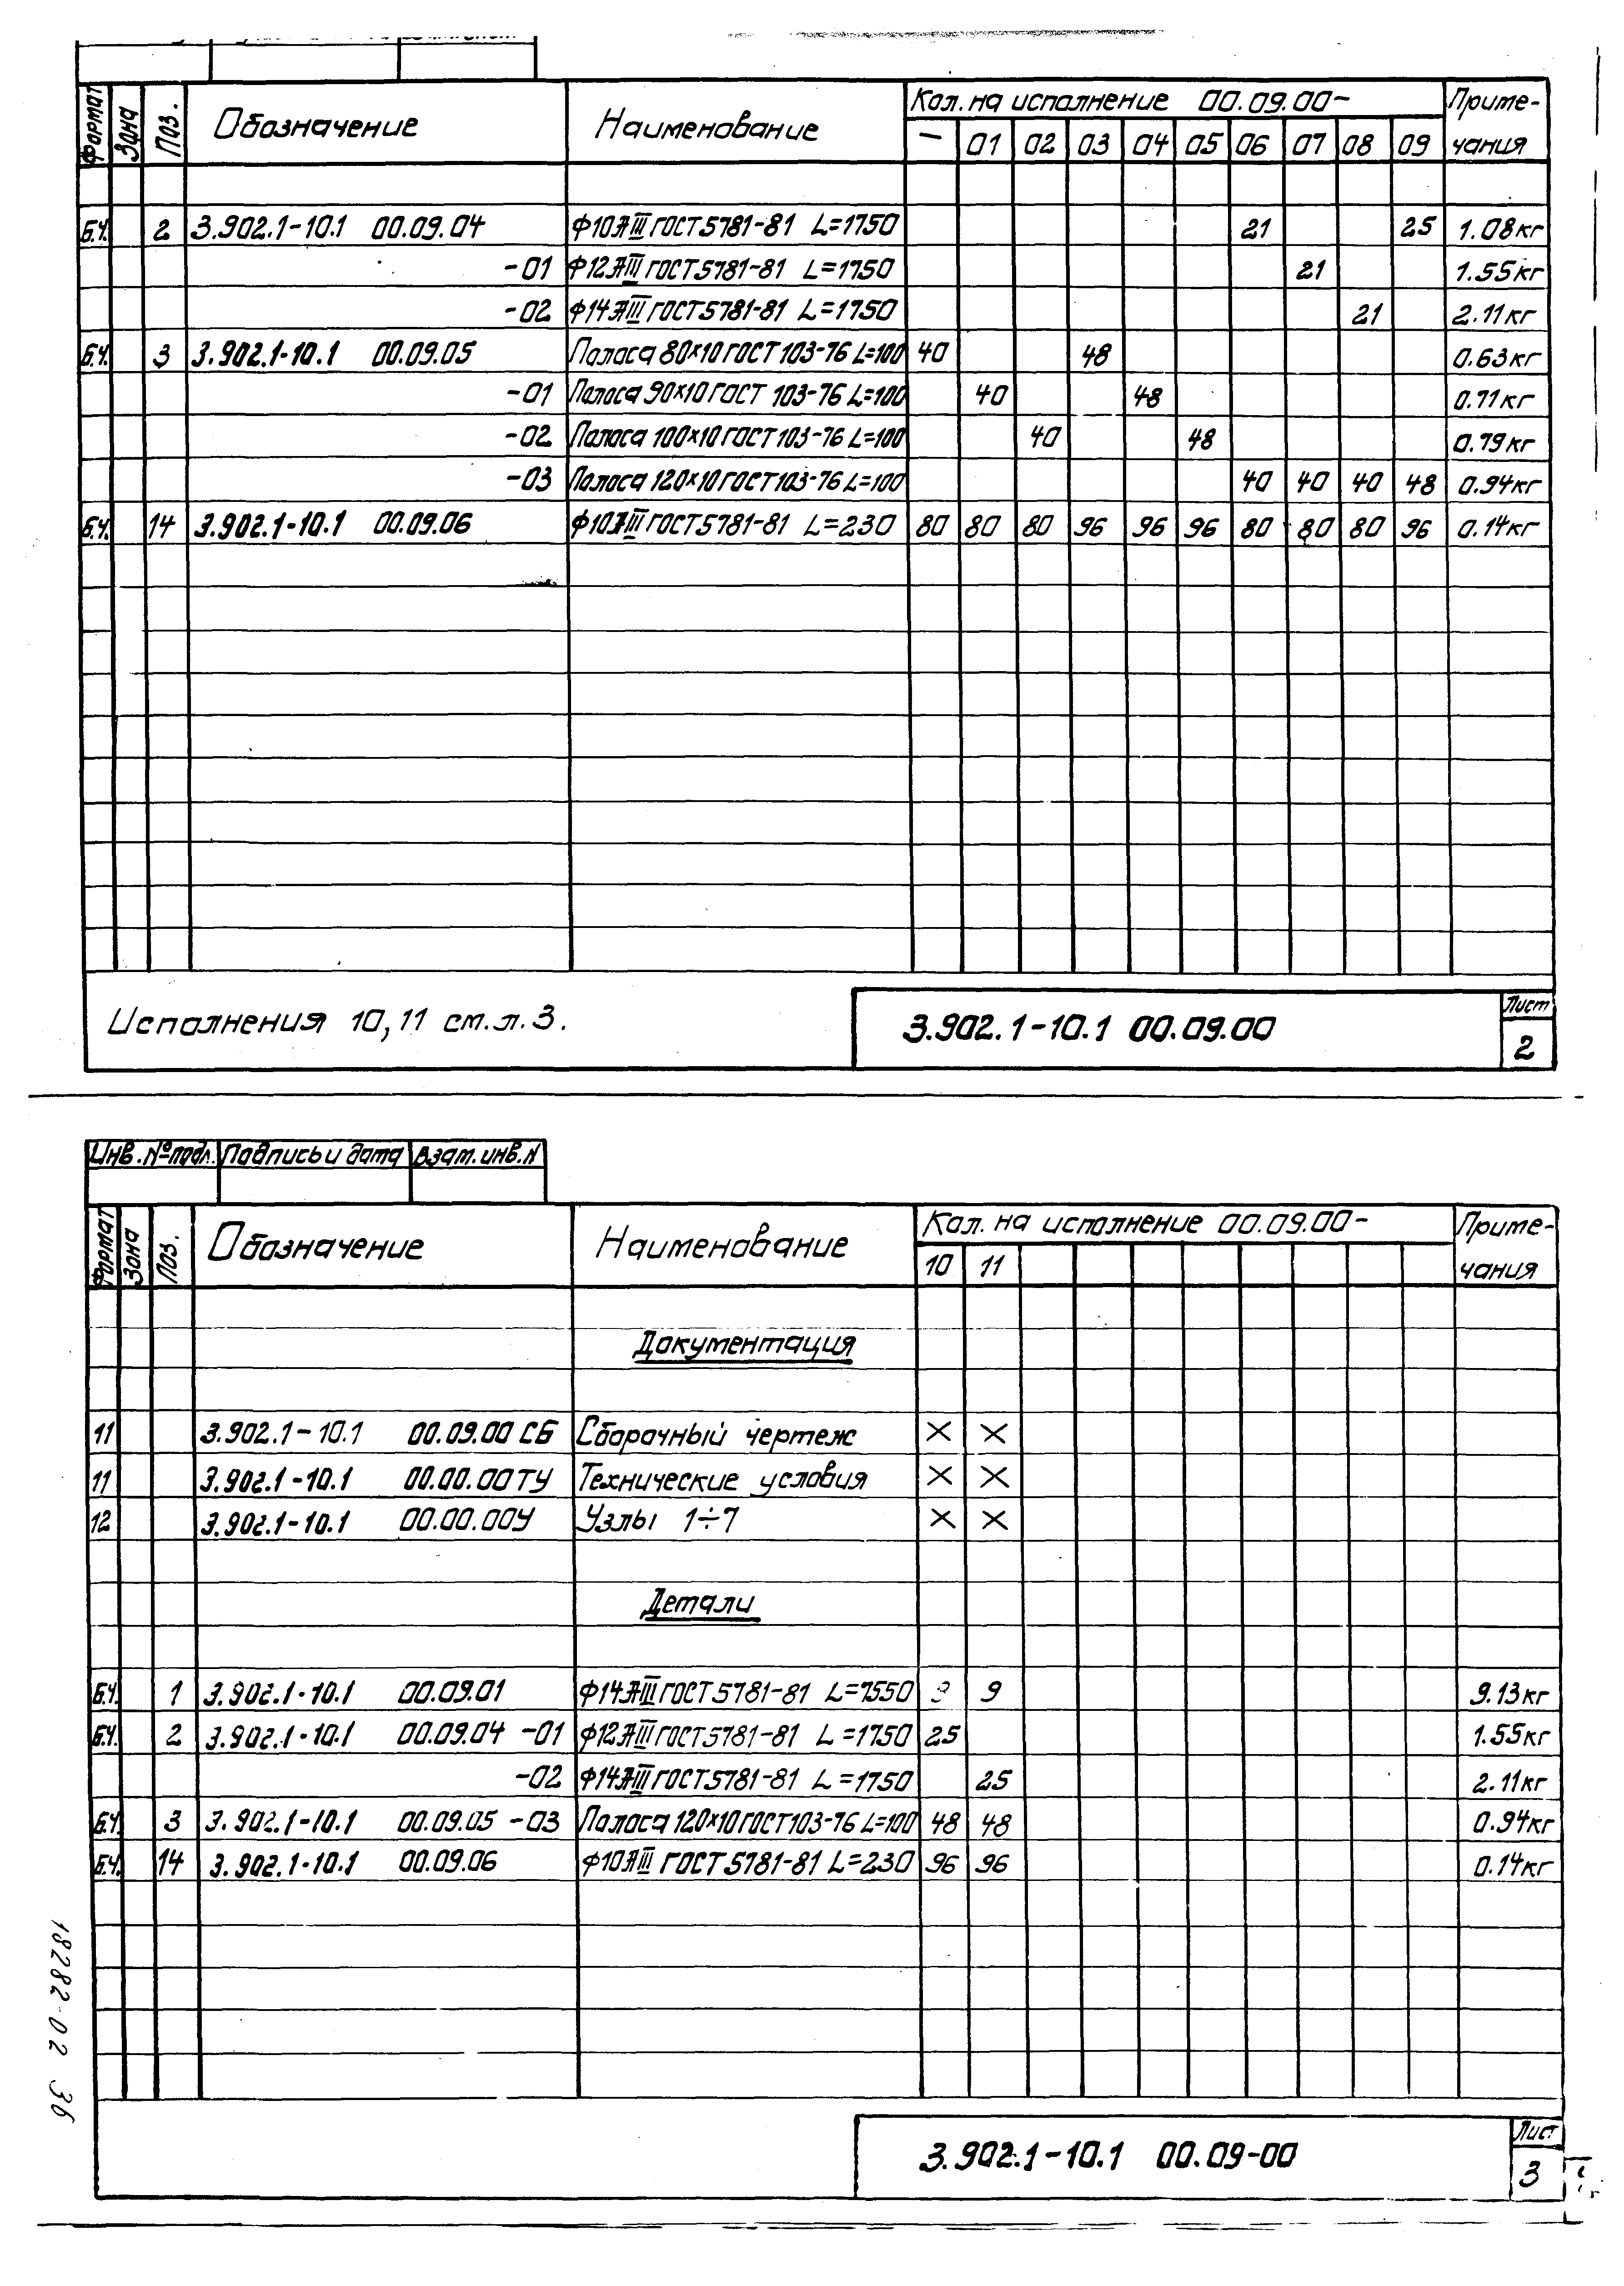 Формат Зона Поз. Обозначение Наименование Кол. на исполнение 00.09.00- Приме-
чания
— 01 02 03 04 05 06 07 08 09
Б.Ч. 2 3.902.1-10.1 00.09.04 Ф10АIII ГОСТ5781-81 L=1750 21 25 1.08кг
-01 Ф12АIII ГОСТ5781-81 L=1750 21 1.55кг
-02 Ф14АIII ГОСТ5781-81 L=1750 21 2.11кг
Б.Ч. 3 3.902.1-10.1 00.09.05 Полоса 80×10 ГОСТ 103-76 L=100 40 48 0.63кг
-01 Полоса 90×10 ГОСТ 103-76 L=100 40 48 0.71кг
-02 Полоса 100×10 ГОСТ 103-76 L=100 40 48 0.79кг
-03 Полоса 120×10 ГОСТ 103-76 L=100 40 40 40 48 0.94кг
Б.Ч. 14 3.902.1-10.1 00.09.06 Ф10АIII ГОСТ5781-81 L=230 80 80 80 96 96 96 80 80 80 96 0.14кг
Исполнения 10,11 см.л.3.
3.902.1-10.1 00.09.00
Лист
2
Инв.№подл. Подпись и дата Взам.инв.N
Формат Зона Поз. Обозначение Наименование Кол. на исполнение 00.09.00- Приме-
чания
10 11
Документация
11 3.902.1-10.1 00.09.00 СБ Сборочный чертеж × ×
11 3.902.1-10.1 00.00.00ТУ Технические условия × ×
12 3.902.1-10.1 00.00.00У Узлы 1÷7 × ×
Детали
Б.Ч. 1 3.902.1-10.1 00.09.01 Ф14АIII ГОСТ5781-81 L=7550 9 9.13кг
Б.Ч. 2 3.902.1-10.1 00.09.04 -01 Ф12АIII ГОСТ5781-81 L=1750 25 1.55кг
-02 Ф14АIII ГОСТ5781-81 L=1750 25 2.11кг
Б.Ч. 3 3.902.1-10.1 00.09.05 -03 Полоса 120×10 ГОСТ103-76 L=100 48 48 0.94кг
Б.Ч. 14 3.902.1-10.1 00.09.06 Ф10АIII ГОСТ5781-81 L=230 96 96 0.14кг
3.902.1-10.1 00.09-00
Лист
3
18282-02 36